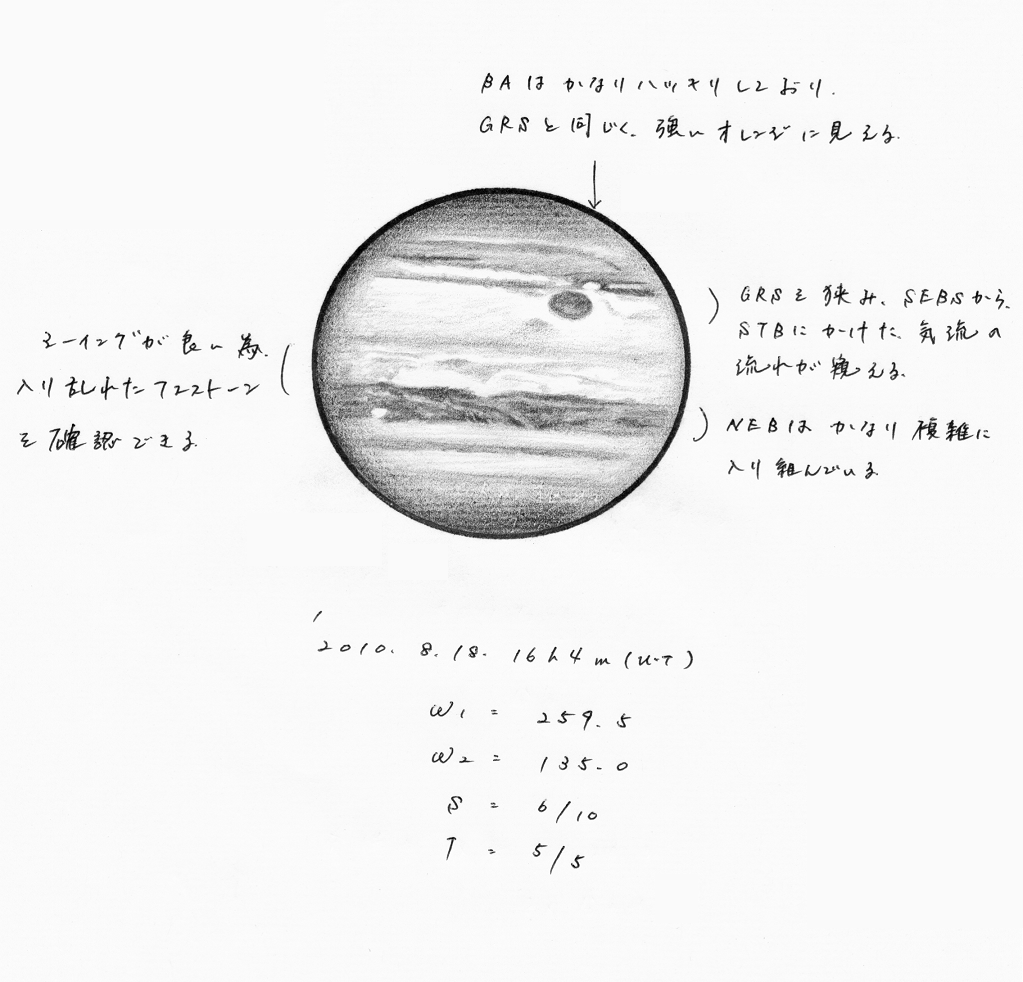 BAはかなりハッキリしており、
GRSと同じく、強いオレンジに見える。
GRSを挟み、SEBSから、
STBにかけた、気流の
流れが窺える。
シーイングが良い為、
入り乱れたフェストーン
を確認できる。
NEBはかなり複雑に
入り組んでいる。
2010. 8. 18. 16h4m(U.T)
ω1 = 259.5
ω2 = 135.0
S = 6/10
T = 5/5